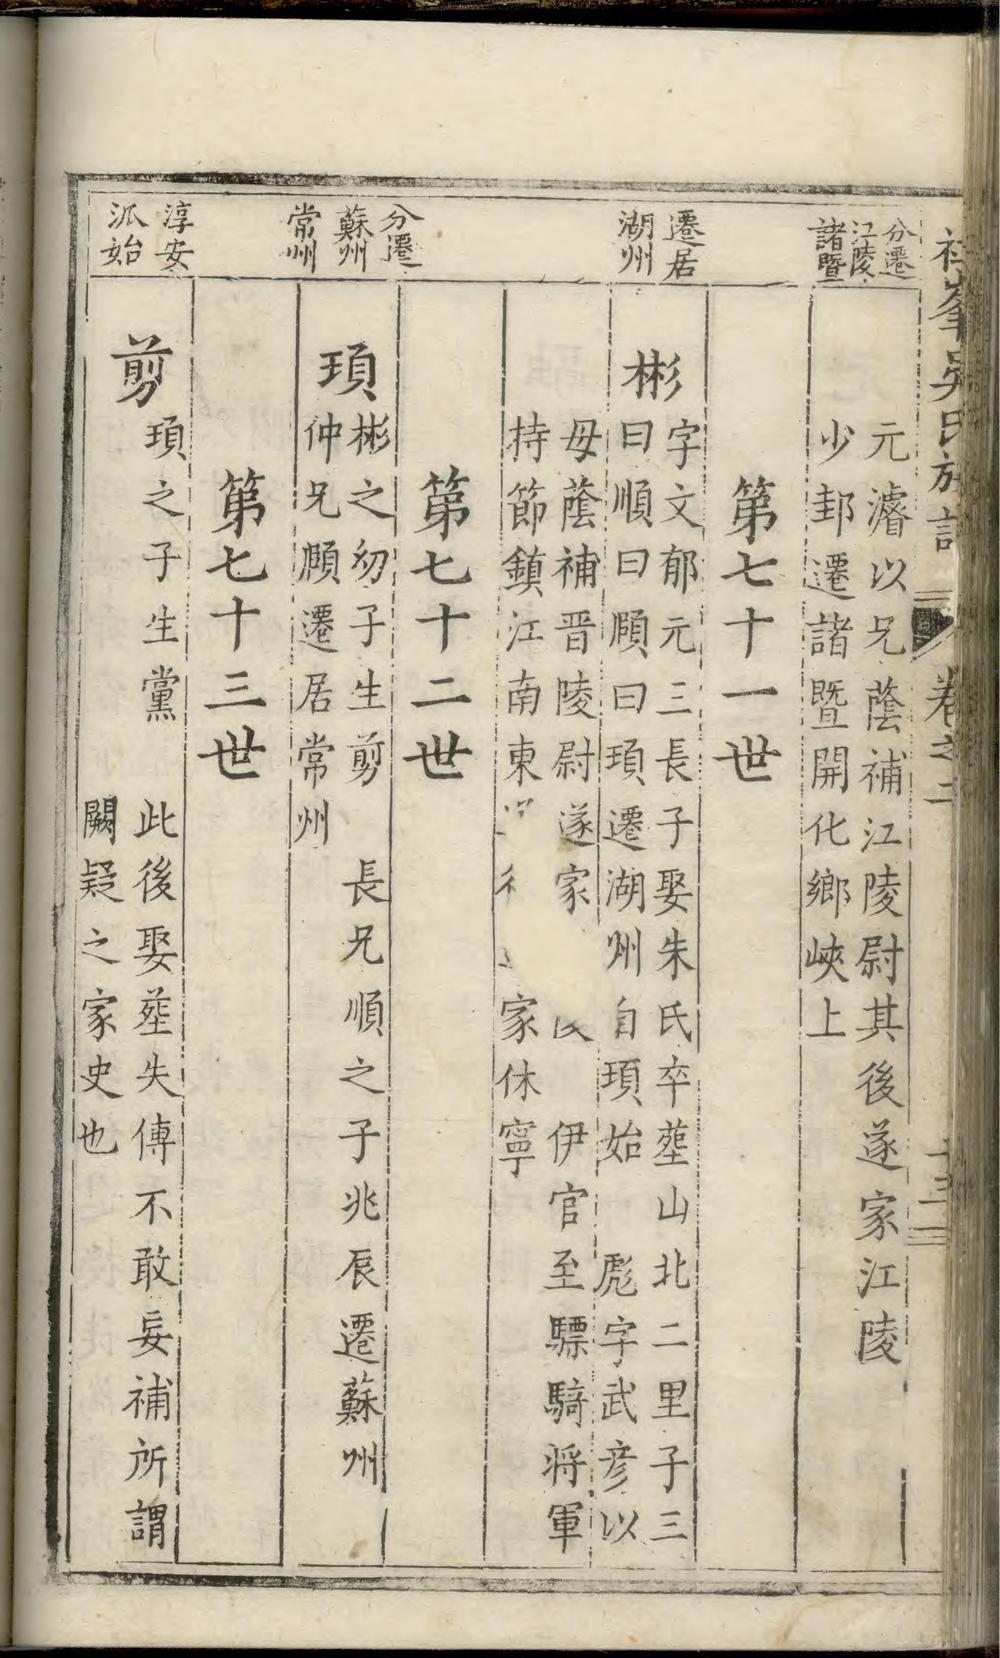 吳氏族譜
卷之二
十三
分遷
江陵
諸暨
元濬以兄蔭補江陵尉其後遂家江陵
少邽遷諸暨開化鄉峽上
第七十一世
遷居
湖州
彬
字文郁元三長子娶朱氏卒塟山北二里子三
曰順曰頎曰頊遷湖州自頊始 彪字武彥以
母蔭補晉陵尉遂家 伊官至驃騎將軍
持節鎮江南東 家休寧
第七十二世
分遷
蘇州
常州
頊
彬之幼子生剪 長兄順之子兆辰遷蘇州
仲兄頎遷居常州
第七十三世
淳安
派始
剪
頊之子生黨 此後娶塟失傳不敢妄補所謂
闕疑之家史也